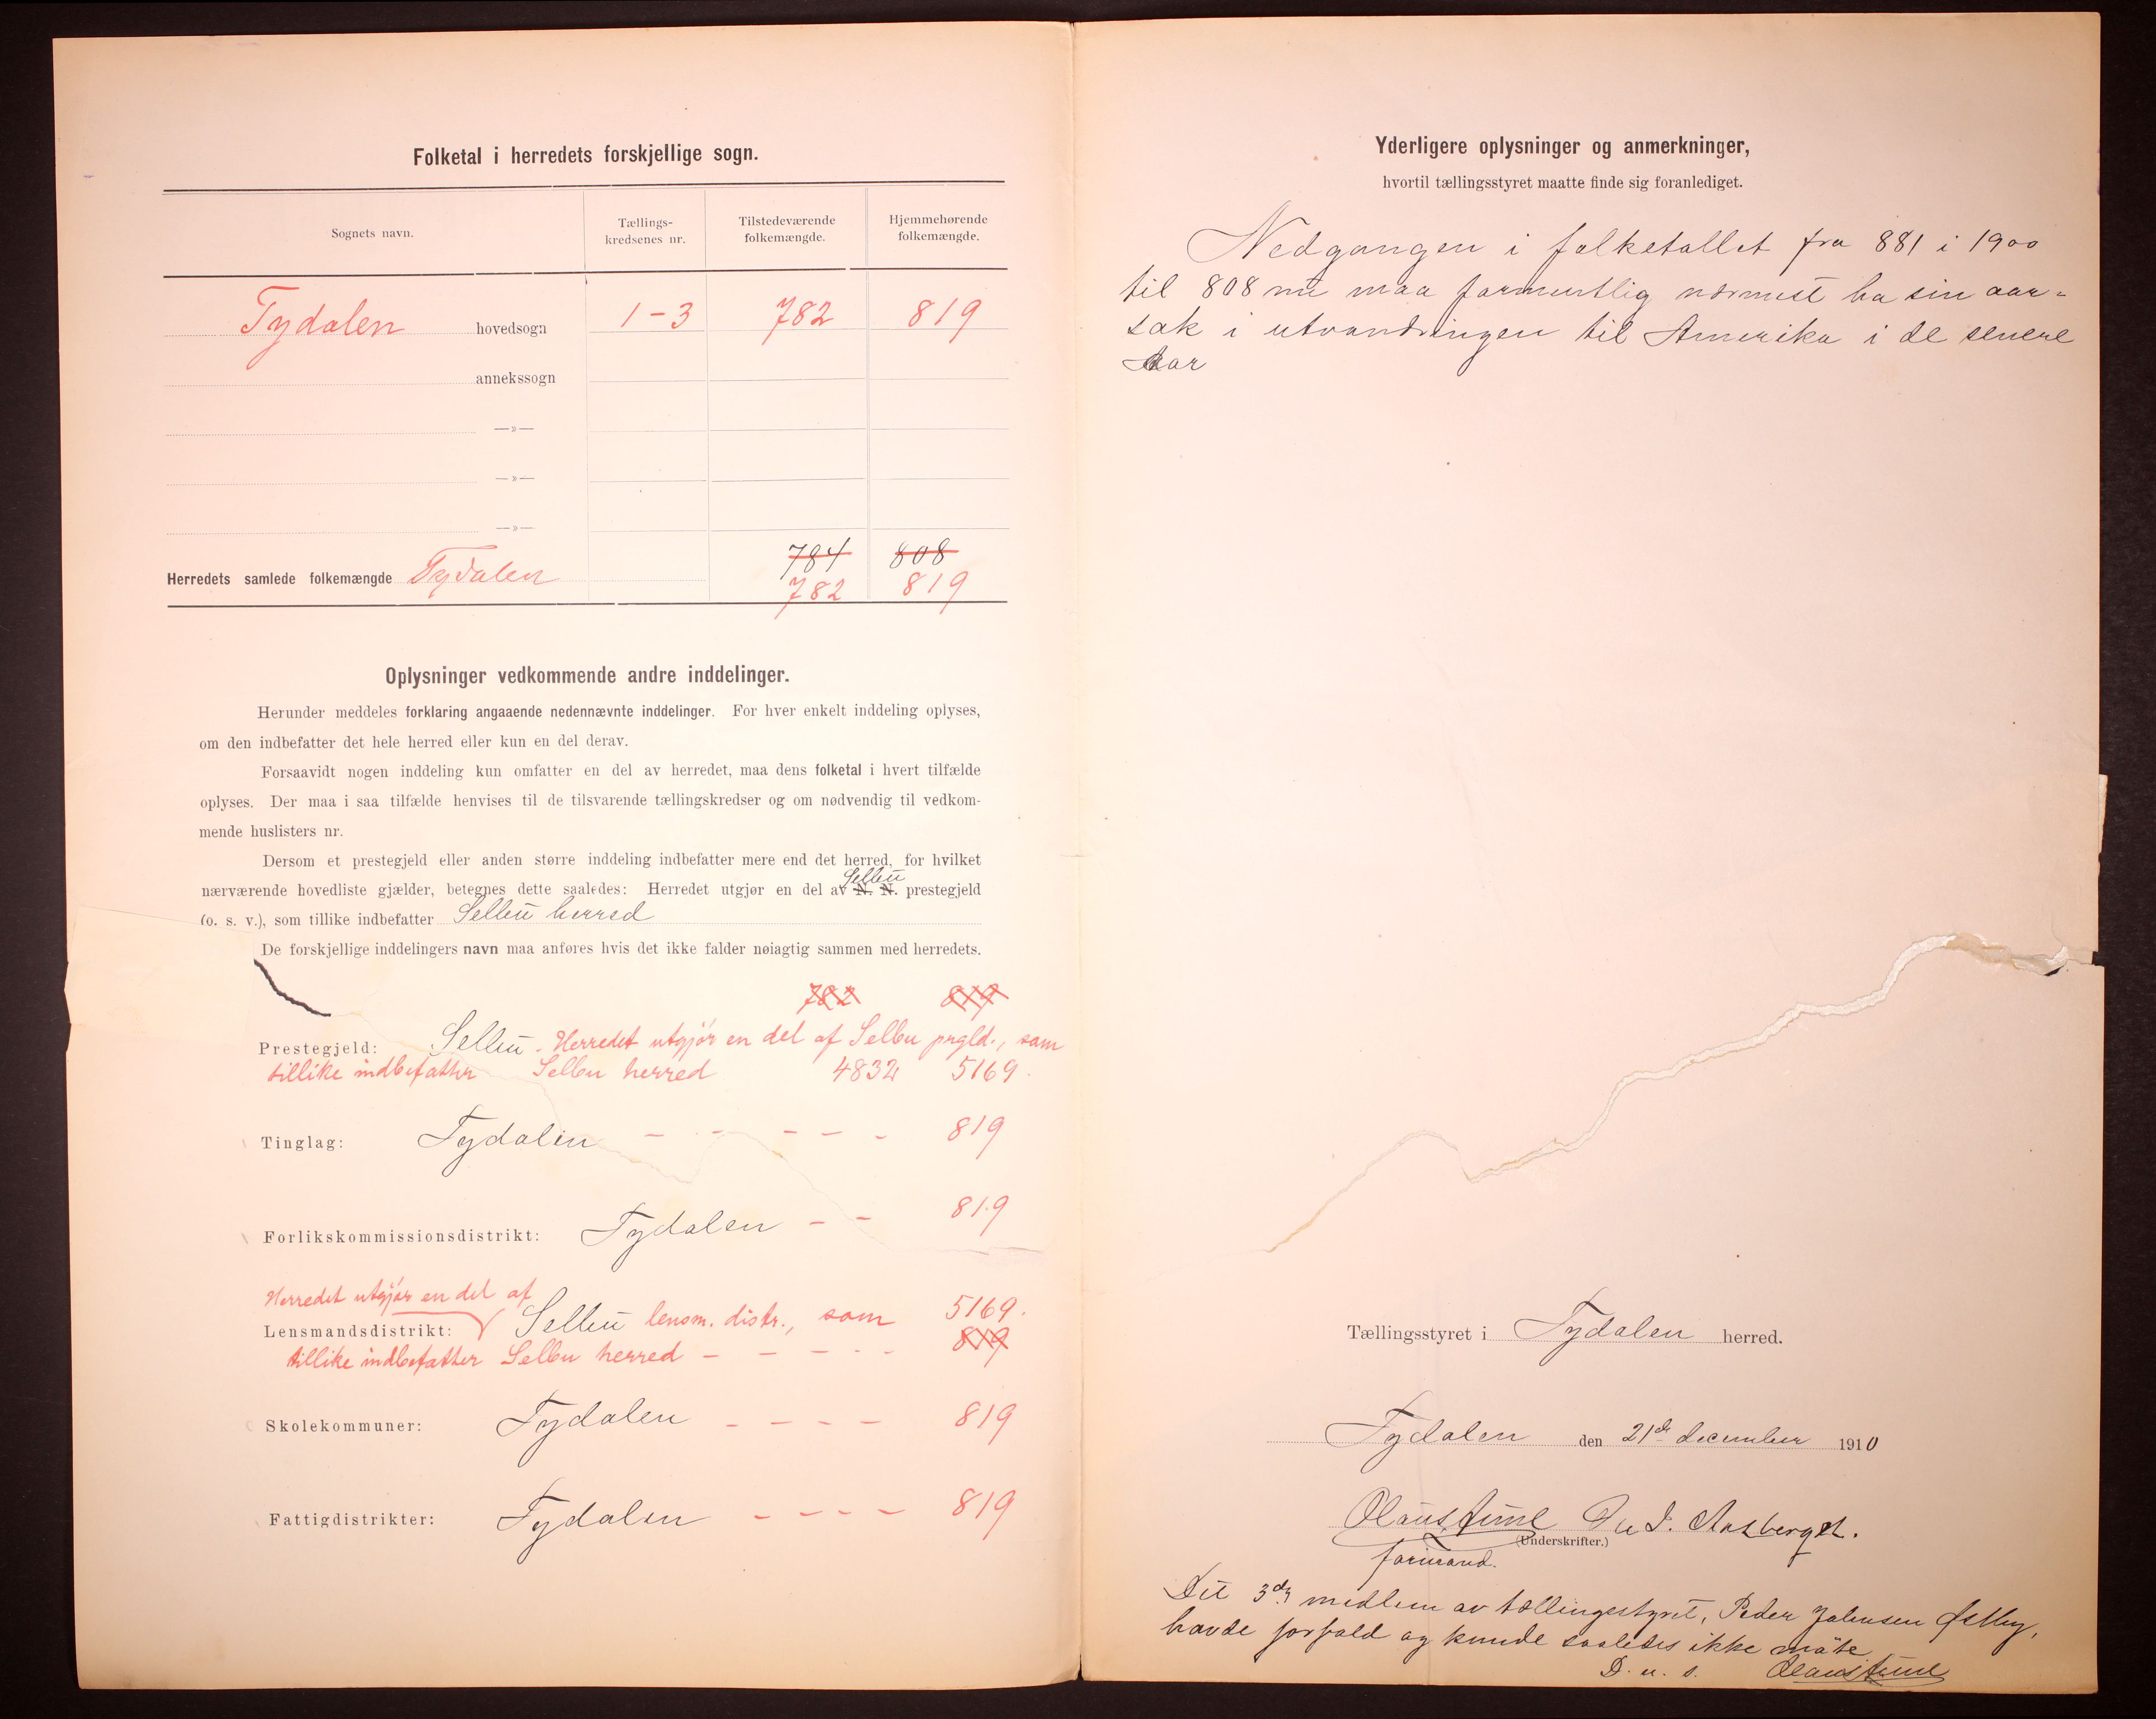 Folketal i herredets forskjellige sogn.
Sognets navn. Tællings-kredsenes nr. Tilstedeværende folkemængde. Hjemmehørende folkemængde.
Tydalen hovedsogn 1-3 782 819
annekssogn
—»—
—»—
—»—
784 808
Herredets samlede folkemængde Tydalen 782 819
Oplysninger vedkommende andre inddelinger.
Herunder meddeles forklaring angaaende nedennævnte inddelinger. For hver enkelt inddeling oplyses,
om den indbefatter det hele herred eller kun en del derav.
Forsaavidt nogen inddeling kun omfatter en del av herredet, maa dens folketal i hvert tilfælde
oplyses. Der maa i saa tilfælde henvises til de tilsvarende tællingskredser og om nødvendig til vedkom-
mende huslisters nr.
Dersom et prestegjeld eller anden større inddeling indbefatter mere end det herred, for hvilket
Selbu
nærværende hovedliste gjælder, betegnes dette saaledes: Herredet utgjør en del av N. N. prestegjeld
(o. s. v.), som tillike indbefatter Selbu herred
De forskjellige inddelingers navn maa anføres hvis det ikke falder nøiagtig sammen med herredets.
782 819
Prestegjeld: Selbu. Herredet utgjør en del af Selbu prgld., som
tillike indbefatter Selbu herred 4832 5169.
Tinglag: Tydalen - - - - - 819
Forlikskommissionsdistrikt: Tydalen - - 819
Herredet utgjør en del af
Lensmandsdistrikt: Selbu lensm. distr., som 5169.
tillike indbefatter Selbu herred - - - - - 819
Skolekommuner: Tydalen - - - - 819
Fattigdistrikter: Tydalen - - - - 819
Yderligere oplysninger og anmerkninger,
hvortil tællingsstyret maatte finde sig foranlediget.
Nedgangen i folketallet fra 881 i 1900
til 808 nu maa formentlig nærmest ha sin aar-
sak i utvandringen til Amerika i de senere
aar
Tællingsstyret i Tydalen herred.
Tydalen den 21de december 1910
Olaus Aune P. J. Aasberget.
(Underskrifter.)
formand.
Det 3de medlem av tællingsstyret, Peder Johnsen Østby,
havde forfald og kunde saaledes ikke møte.
D. u. s. Olaus Aune